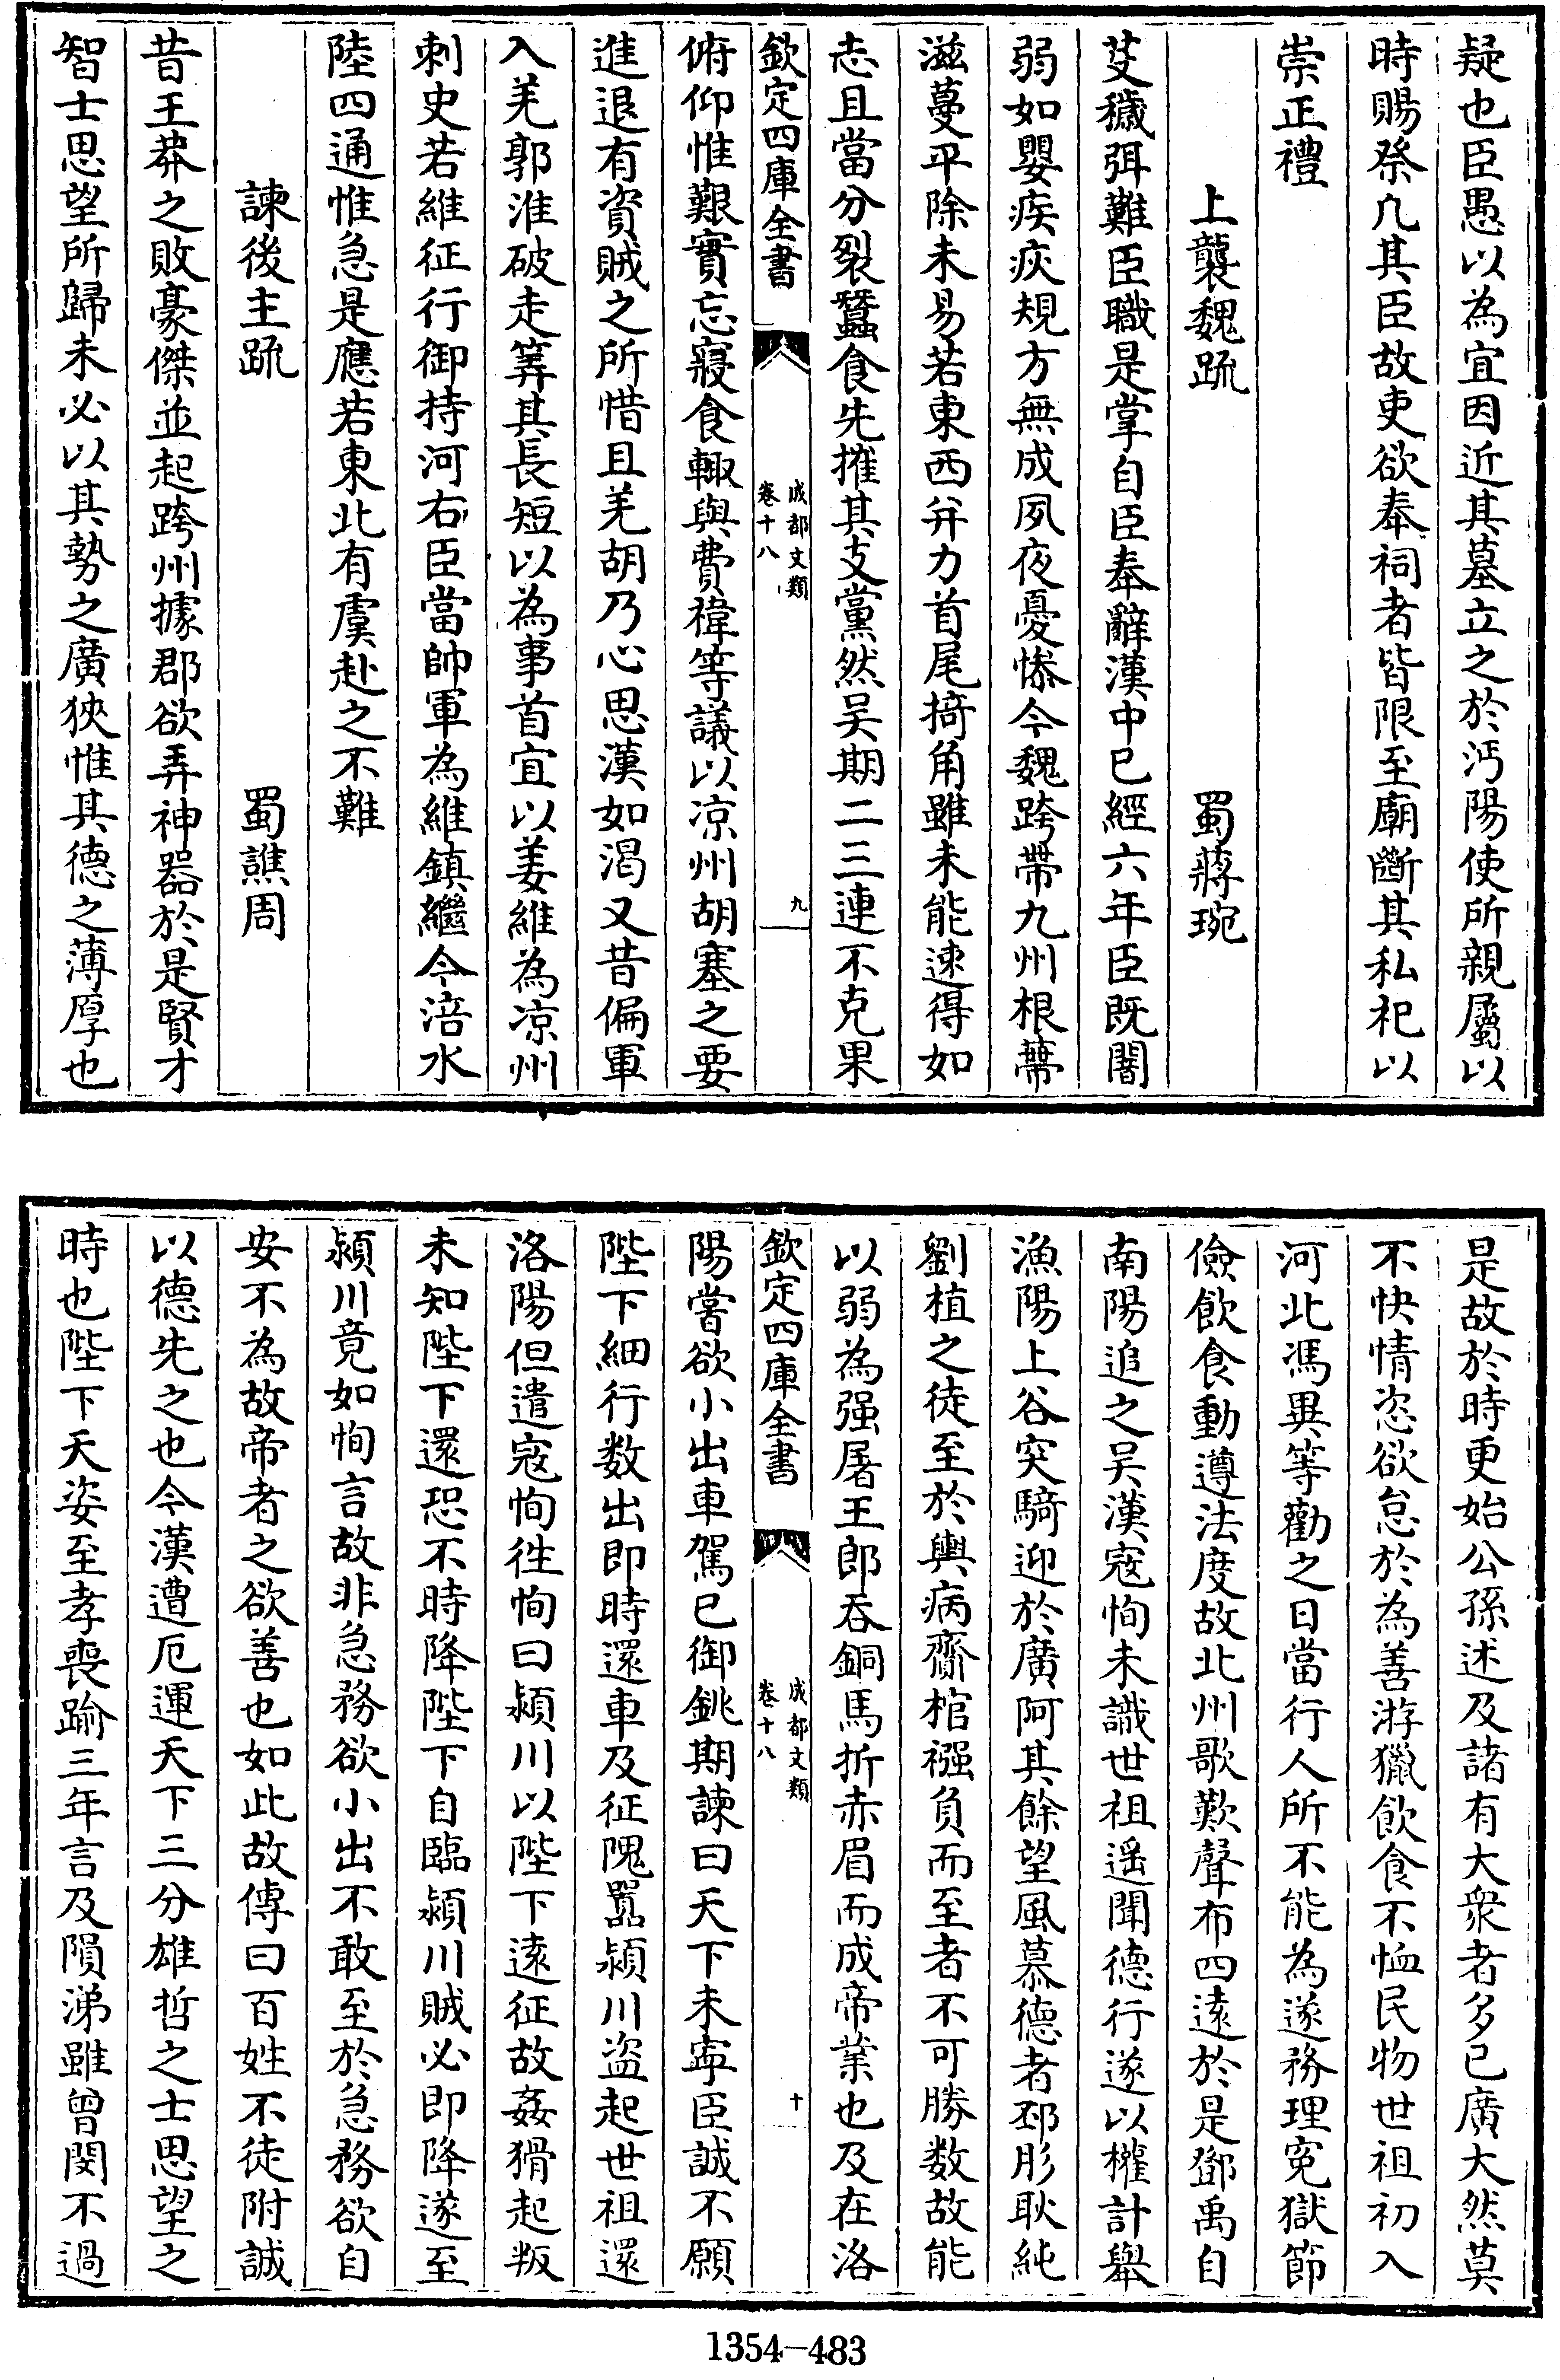 疑也臣愚以為宜因近其墓立之於沔陽使所親屬以
時賜祭凡其臣故吏欲奉祠者皆限至廟斷其私祀以
崇正禮
上襲魏疏　蜀蔣琬
芟穢弭難臣職是掌自臣奉辭漢中已經六年臣既闇
弱如嬰疾疢規方無成夙夜憂慘今魏跨帶九州根蔕
滋蔓平除未易若東西并力首尾掎角雖未能速得如
志且當分裂蠶食先摧其支黨然吴期二三連不克果
欽定四庫全書
成都文類
卷十八
九
俯仰惟艱實忘寢食輙與費禕等議以凉州胡塞之要
進退有資賊之所惜且羌胡乃心思漢如渴又昔偏軍
入羌郭淮破走筭其長短以為事首宜以姜維為凉州
刺史若維征行御持河右臣當帥軍為維鎮繼今涪水
陸四通惟急是應若東北有虞赴之不難
諫後主疏　蜀譙周
昔王莽之敗豪傑並起跨州據郡欲弄神器於是賢才
智士思望所歸未必以其勢之廣狹惟其德之薄厚也
是故於時更始公孫述及諸有大衆者多已廣大然莫
不快情恣欲怠於為善游獵飲食不恤民物世祖初入
河北馮異等勸之曰當行人所不能為遂務理寃獄節
儉飲食動遵法度故北州歌歎聲布四逺於是鄧禹自
南陽追之吴漢寇恂未識世祖遥聞德行遂以權計舉
漁陽上谷突騎迎於廣阿其餘望風慕德者邳肜耿純
劉植之徒至於輿病齎棺襁負而至者不可勝数故能
以弱為强屠王郎吞銅馬折赤眉而成帝業也及在洛
欽定四庫全書
成都文類
卷十八
十
陽嘗欲小出車駕已御銚期諫曰天下未寧臣誠不願
陛下細行数出即時還車及征隗嚻潁川盜起世祖還
洛陽但遣寇恂徃恂曰潁川以陛下逺征故姦猾起叛
未知陛下還恐不時降陛下自臨潁川賊必即降遂至
潁川竟如恂言故非急務欲小出不敢至於急務欲自
安不為故帝者之欲善也如此故傳曰百姓不徒附誠
以德先之也今漢遭厄運天下三分雄哲之士思望之
時也陛下天姿至孝喪踰三年言及隕涕雖曾閔不過
1354-483